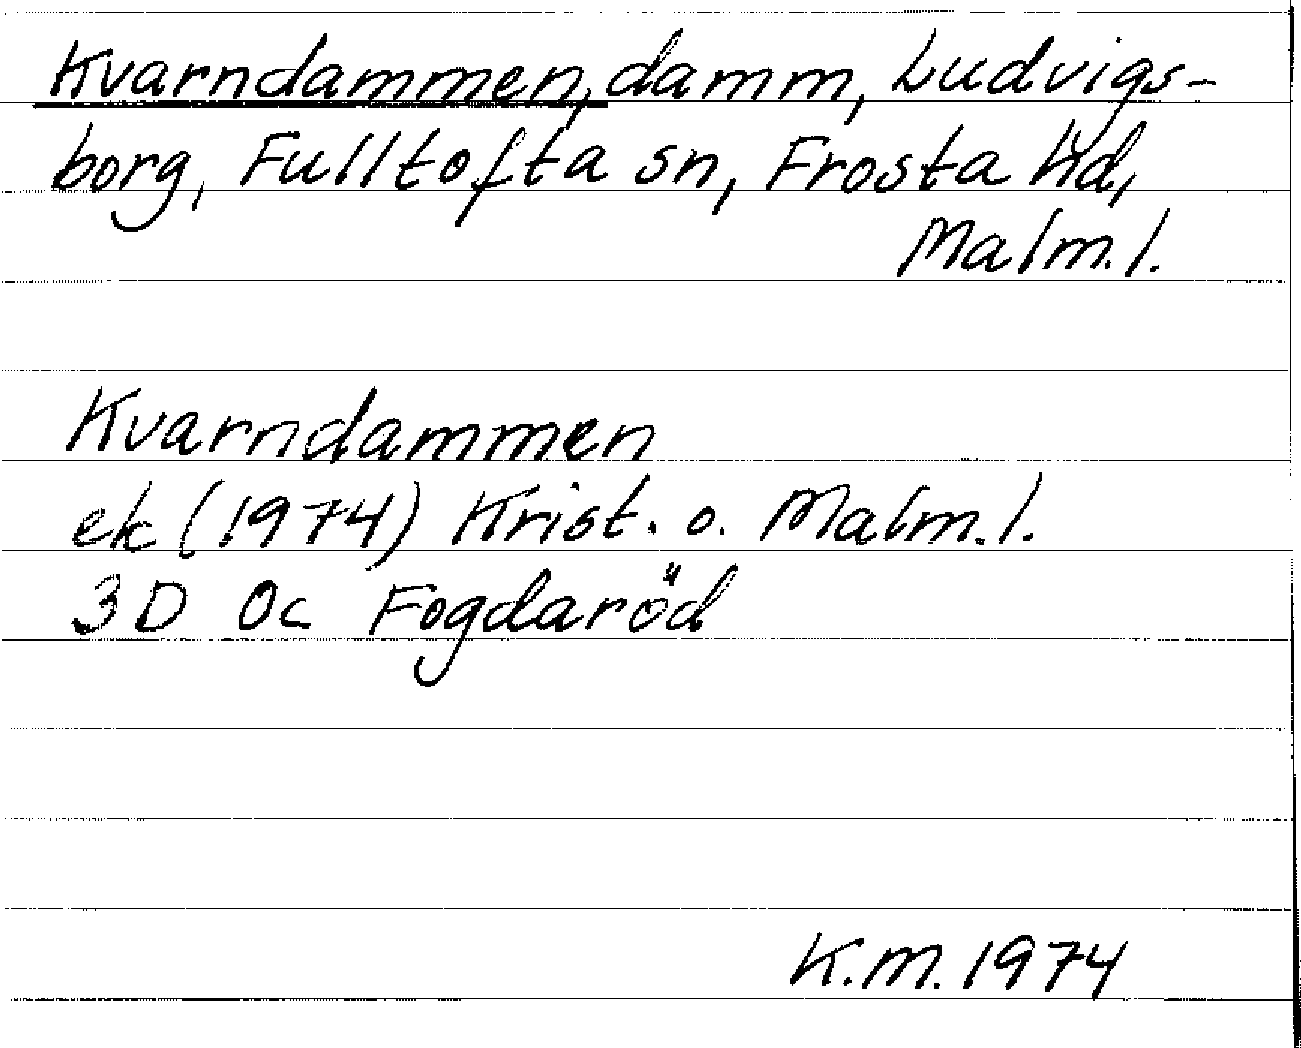 Kvarndammen, damm, Ludvigs-
borg, Fulltofta sn, Frosta Hd,
Malm.l.
Kvarndammen
ek (1974) Krist. o. Malm.l.
3D 0c Fogdaröd
K.M. 1974